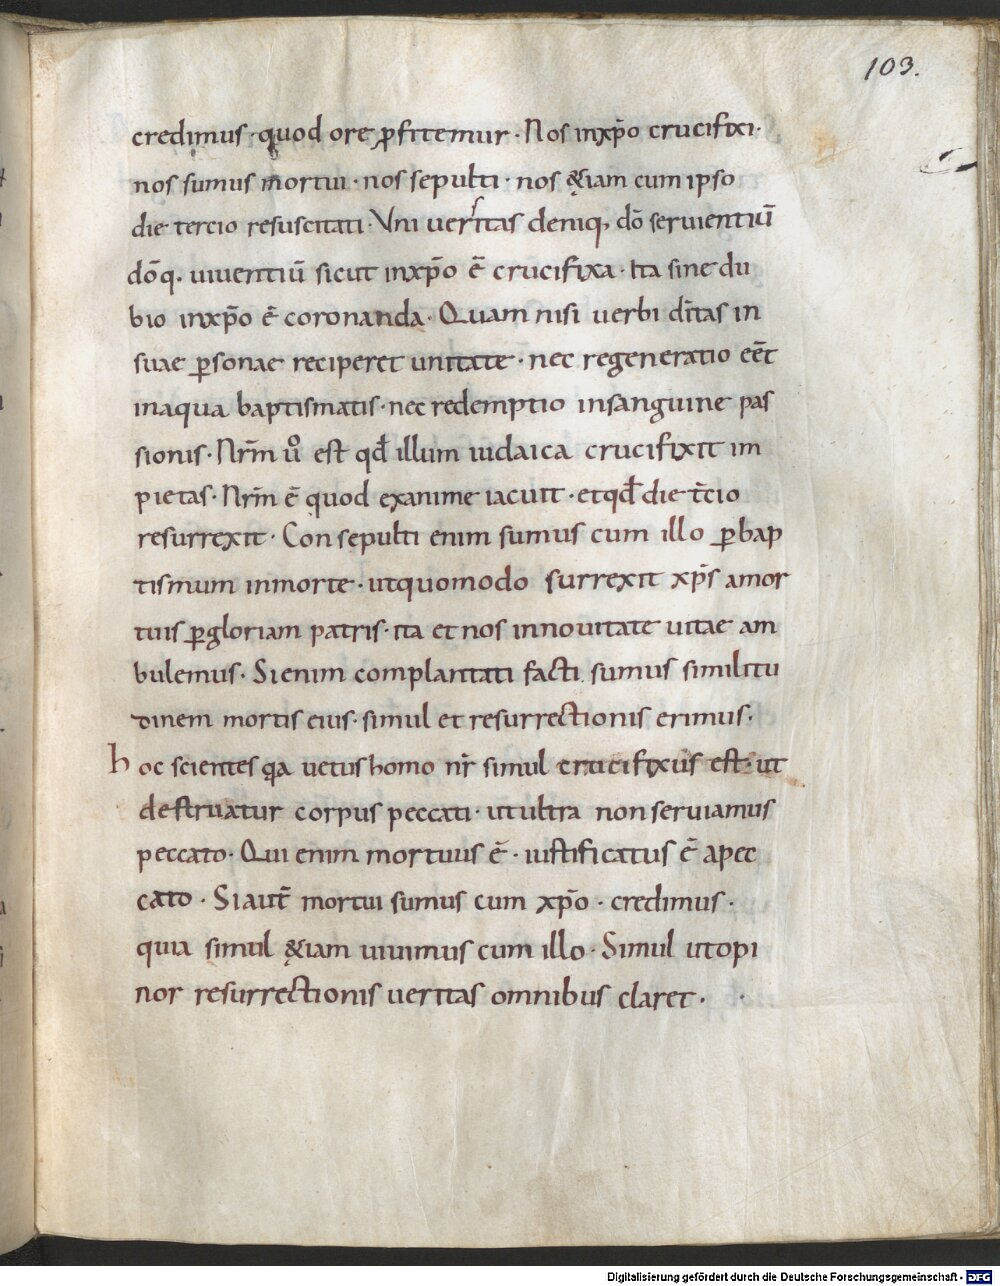 103.
credimus · quod ore ꝓfitemur · Nos inxp̄o crucifixi ·
nos sumus mortui · nos sepulti · nos &iam cum ipso
die tercio resuscitati · Vni uersitas deniq, dō seruientiū
dōq. uiuentiū sicut inxp̄o ē crucifixa · Ita sine du
bio inxp̄o ē coronanda · Quam nisi uerbi ditas in
suae ꝑsonae reciperet unitate · nec regeneratio eēt
inaqua baptismatis · nec redemptio insanguine pas
sionis · Nrm̄ ůo est qd̄ illum iudaica crucifixit im
pietas · Nrm̄ ē quod exanime iacuit · etqd̄ die t̄cio
resurrexit · Con sepulti enim sumus cum illo ꝑ bap
tismum inmorte · utquomodo surrexit xp̄s amor
tuis ꝑ gloriam patris · ita et nos innouitate uitae am
bulemus · Sienim complantati facti sumus similitu
dinem mortis eius · simul et resurrectionis erimus ·
hoc scientes qa uetus homo nr̄ simul crucifixus est · ut
destruatur corpus peccati · ut ultra non seruiamus
peccato · Qui enim mortuus ē · iustificatus ē apec
cato · Siaut̄ mortui sumus cum xp̄o · credimus ·
quia simul &iam uiuimus cum illo · Simul utopi
nor resurrectionis ueritas omnibus claret ·
Digitalisierung gefördert durch die Deutsche Forschungsgemeinschaft - DFG